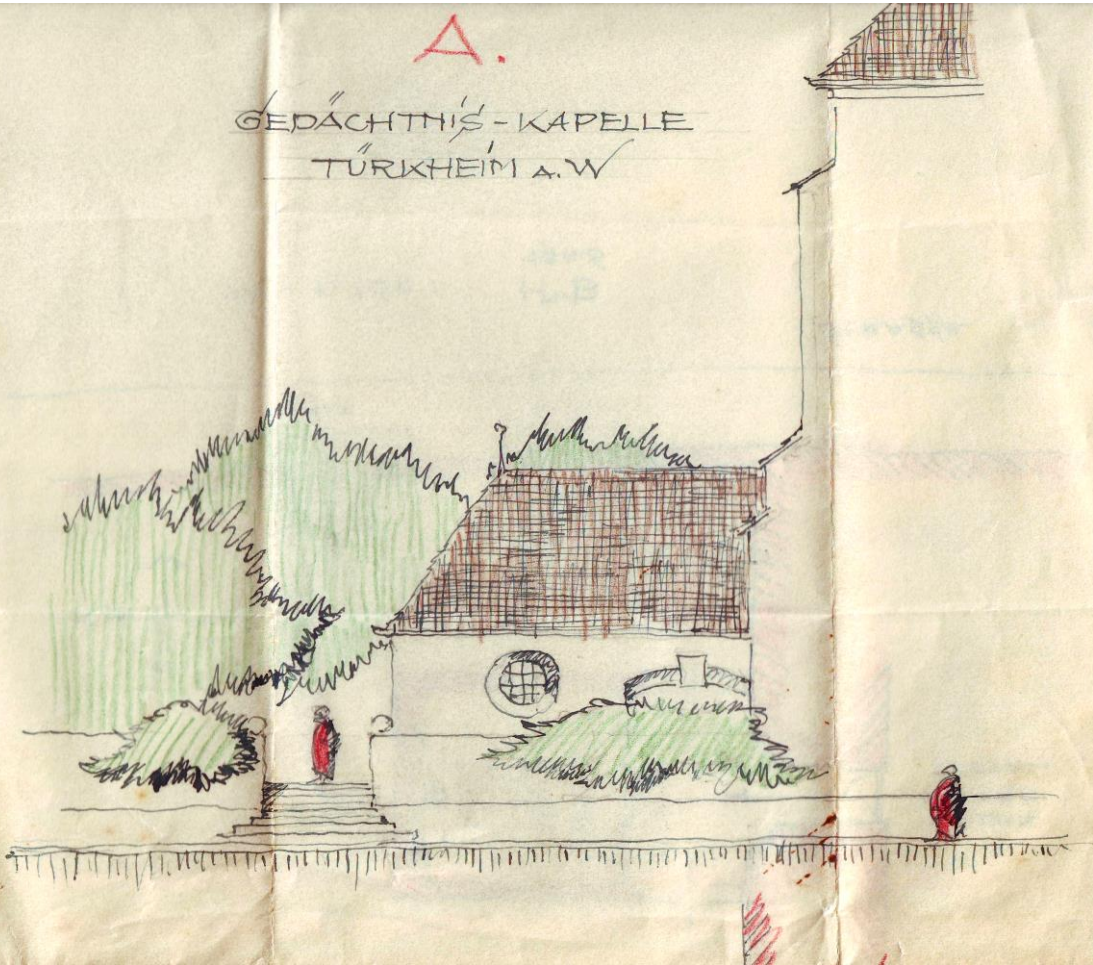 A.
GEDÄCHTNIS-KAPELLE
TÜRKHEIM A.W